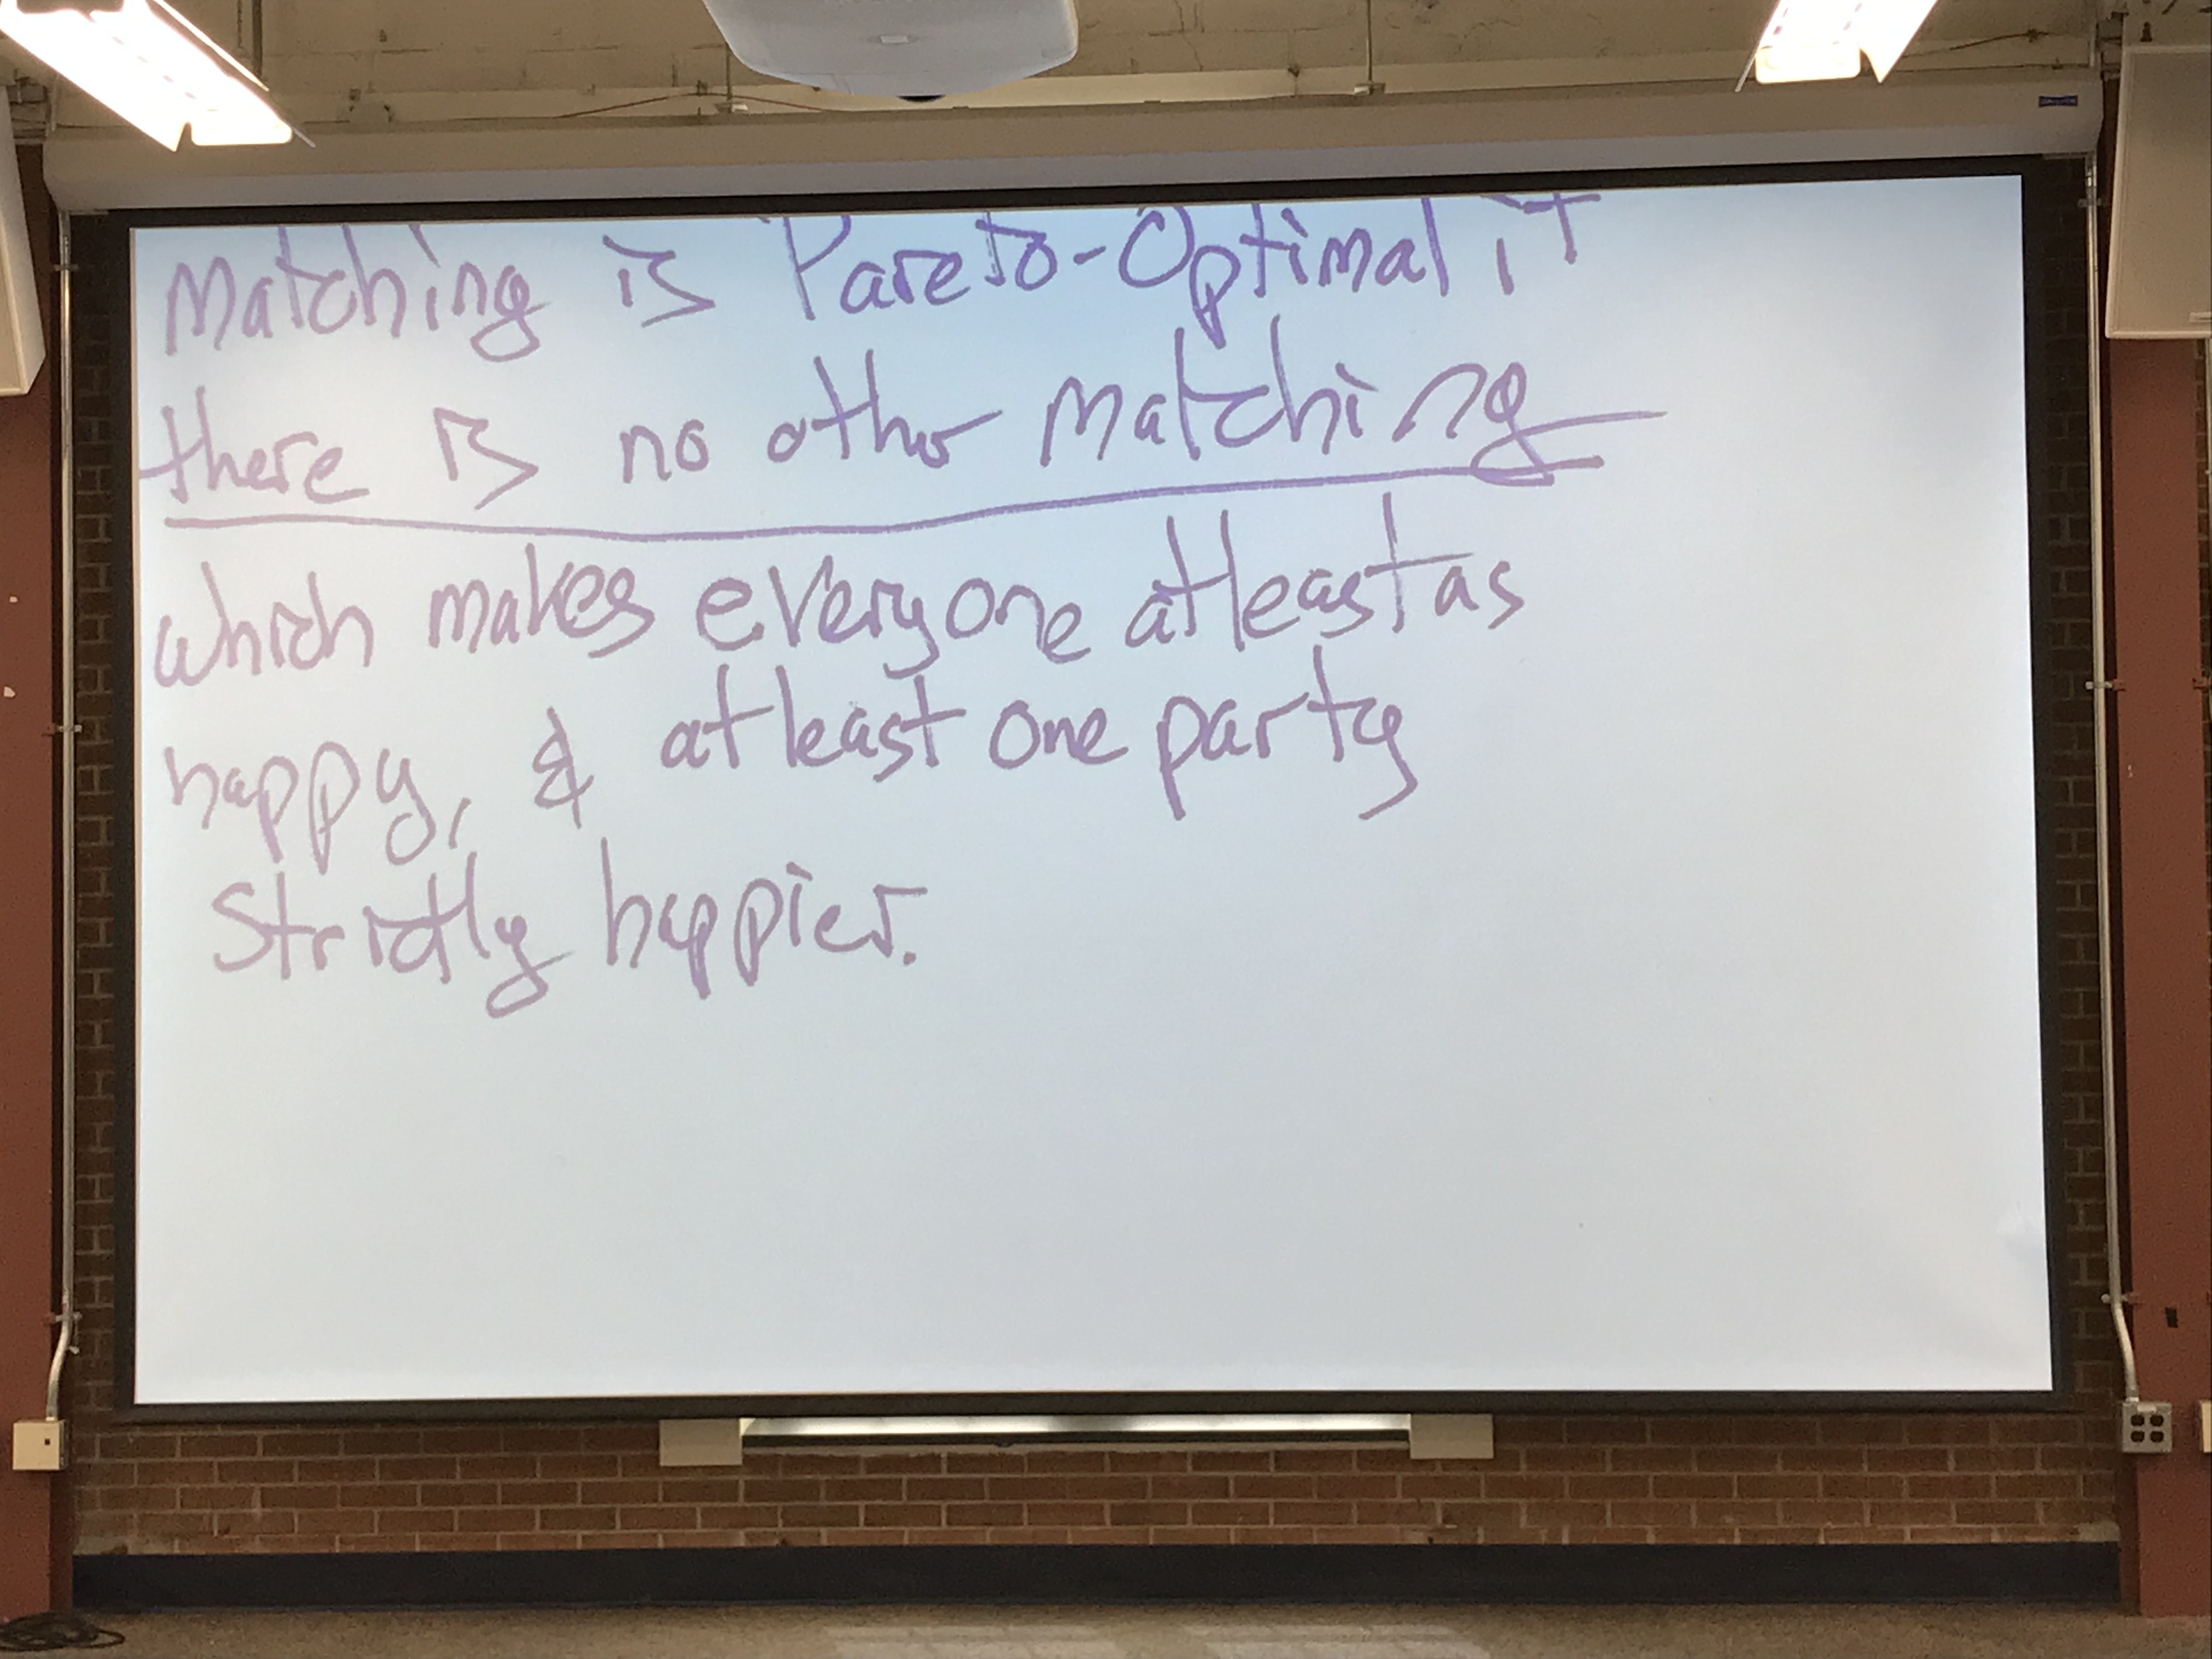 Matching is Pareto-Optimal if
there is no other matching
which makes everyone at least as
happy, & at least one party
strictly happier.